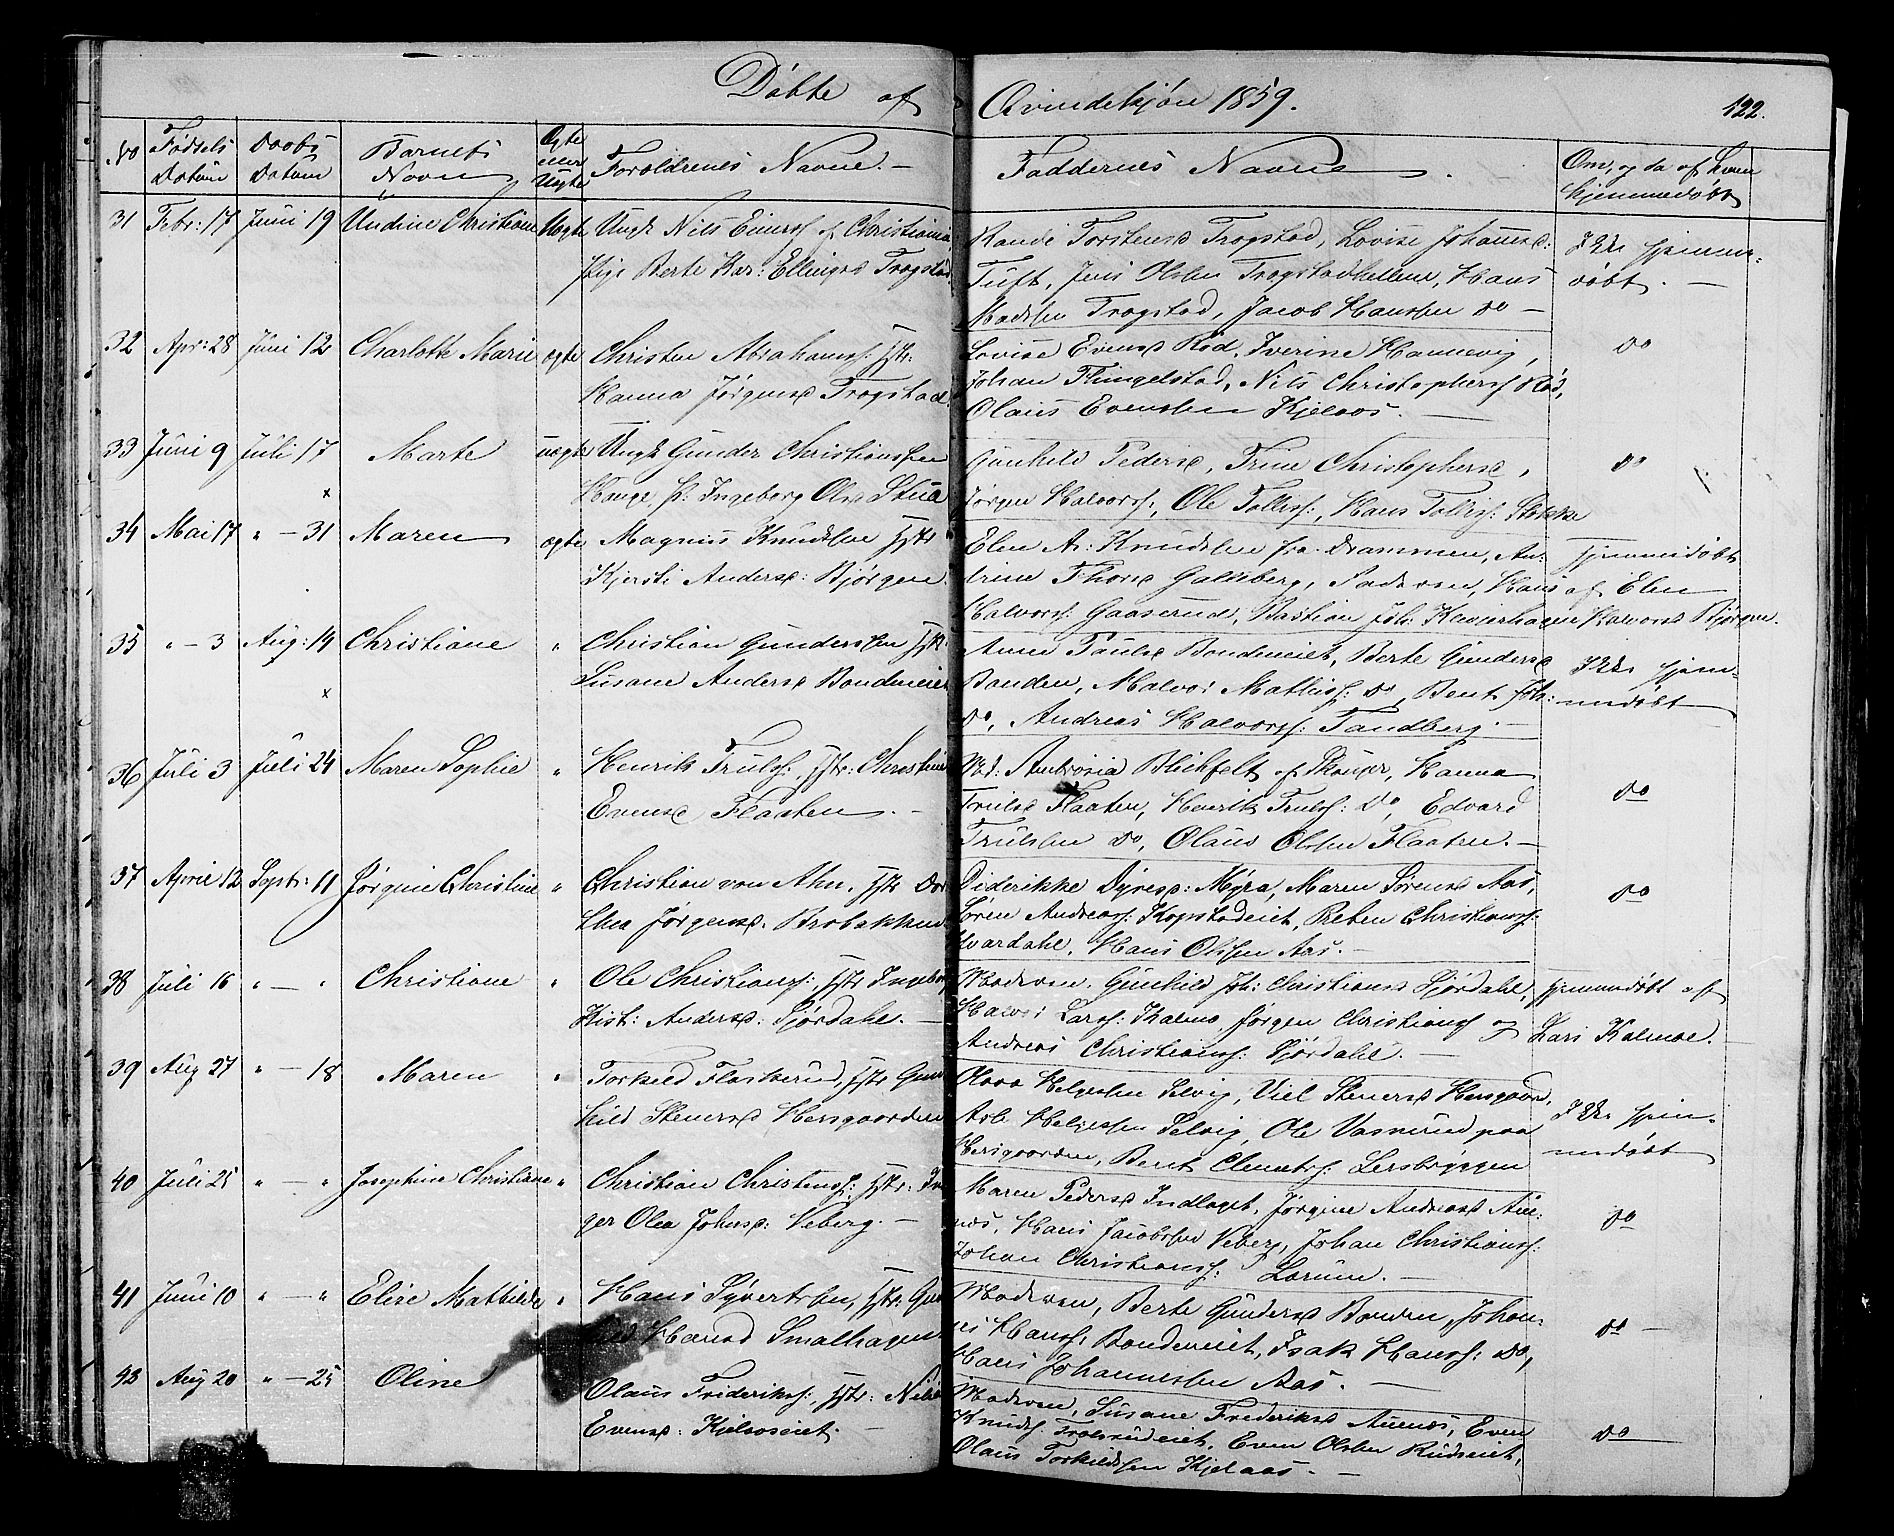 Døbte af Qvindekjøn 1859. 122.
No Fødsels Datum Daabs Datum Barnets Navn Ægte eller Uægte Forældrenes Navne. Faddernes Navne. Om, og da af hvem hjemmedøbt
31 Febr: 17 Juni 19 Undine Christiane Uægte Ungk Nils Einerss af Christiania
Pige Berte Kar: Ellingsd Trogstad
Randi Torstensd Trogstad, Lovise Johannesd:
Tuft, Jens Olsen Trogstadhellene, Hans
Madsen Trogstad, Jacob Hanssen do
Ikke hjemme-
døbt.
32 Apr: 28 Juni 12 Charlotte Marie ægte Christen Abrahamss: Hstr:
Hanna Jørgensd Trogstad.
Lovise Evensd Rød, Iverine Hannevig,
Johan Thingelstad, Nils Christophers Rød,
Olaus Evensen Kjelaas.
do
33 Juni 9 Juli 17 Marte uægte Ungk Gunder Christianssen
Hauge, P: Ingeborg Olsd Stua
Gunhild Pedersd, Trine Christophersd,
Jørgen Halvorss:, Ole Tollefs:, Hans Tollefs: Stokke
do
x
34 Mai 17 " - 31 Maren ægte Magnus Knudsen Hstr
Kjersti Andersd: Bjørgen.
Elen A: Knudsen fra Drammen, An-
drine Thorsd Galleberg, Faderen, Hans
Halvors: Gaaserud, Bastian Joh: Kleverhagen
Hjemmedøbt
af Elen
Halvorsd Bjørgen.
35 " - 3 Aug: 14 Christiane " Christian Gunderssen Hstr:
Susane Andersd Bondeneiet
Anne Paulsd Bondeneiet, Berte Gundersd
Bonden, Halvor Mathis: do, Bent Joh:
do, Andreas Halvorss: Tandberg.
Ikke hjem-
medøbt
x
36 Juli 3 Juli 24 Maren Sophie " Henrik Trulss:, Hstr: Christine
Evensd Flaaten.
Md: Ambrosia Blichfelt af Skouger, Hanna
Trulsd Flaaten, Henrik Truls: do, Edvard
Trulssen do, Olaus Olssen Flaaten.
do
37 April 12 Septr: 11 Jørgine Christine " Christian von Ahn, Hstr Dor
thea Jørgensd. Brobakken
Diderikke Dyresd: Myra, Maren Sørensd Aas,
Søren Andreass: Kopstadeiet, Preben Christianss:
Hvardahl, Hans Olssen Aas.
do
38 Juli 16 " - " Christiane " Ole Christianss:, Hstr Ingeborg
Kist: Andersd: Sjørdahl.
Moderen, Gunhild Joh: Christiansd Sjørdahl,
Halvor Larss: Kalnæs, Jørgen Christianss og
Andreas Christianss: Sjørdahl.
Hjemmedøbt af
Lars Kalnæs.
39 Aug 27 " - 18 Maren " Torkild Flaskerud, Hstr Gun
hild Stenersd Hersgaarden
Olava Helgessen Selvig, Viel Stenersd Hersgaard,
Asle Helgessen Selvig, Ole Vasrund paa
Hersgaarden, Berit Clemets: Lersbryggen
Ikke hjem-
medøbt
40 Juli 25 " - " Josephine Christiane " Christian Christenss:, Hstr: In
ger Olea Johnsd: Veberg.
Maren Pedersd Indlaget, Jørgine Andreasd Au-
næs, Hans Jacobsen Veberg, Johan Christianss:
Johan Christianss: Lorum.
do
41 Juni 10 " - " Elise Mathilde " Hans Syvertsen, Hstr: Gun
hild Hansd Smalhagen
Moderen, Berte Gundersd Bonden, Johan-
nes Hanss: Bondeneiet, Isak Hanss: do,
Hans Johannessen Aas.
do
42 Aug 20 " - 25 Oline Olaus Frideriks:, Hstr:
Evensd: Kjelaaseiet.
Moderen, Susane Frederiksd Auenæs, Even
Knuds: Trolsrudeiet, Even Olsen Rudseiet,
Olaus Torkildsen Kjelaas.
do